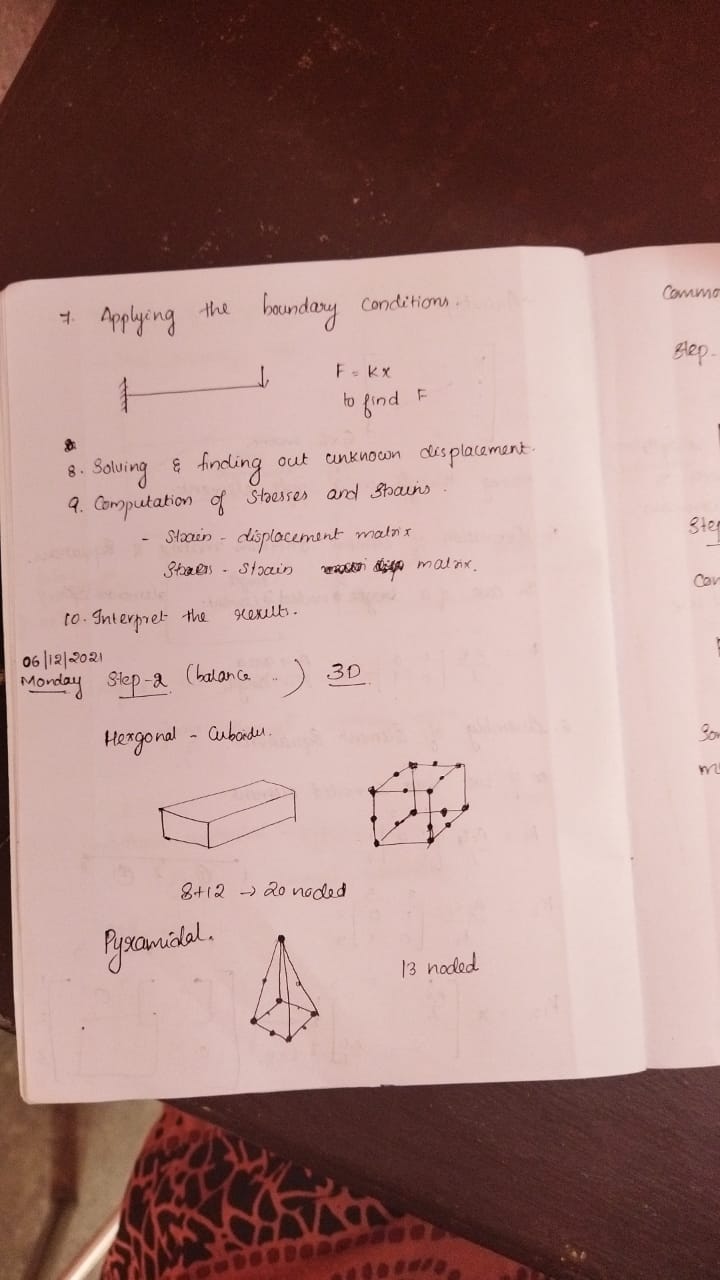 7. Applying the boundary conditions.
F = kx
to find F
8. Solving & finding out unknown displacement.
9. Computation of Stresses and Strains.
- Strain - displacement matrix
Stress - Strain matrix.
10. Interpret the results.
06/12/2021
Monday Step-2 (balance ..) 3D
Hexgonal - Cuboidu.
8+12 → 20 noded
Pyramidal.
13 noded
Commo
Step-
Step
Con